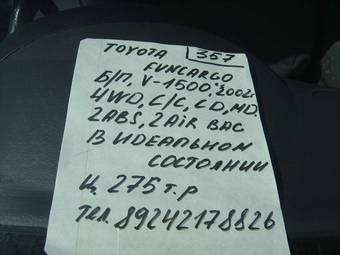 TOYOTA 357
FUNCARGO
Б/П, V-1500, 2002г
4WD, C/C, CD, MD.
2ABS, 2AIR BAG
В ИДЕАЛЬНОМ
СОСТОЯНИИ
Ц. 275 т.р
тел. 89242178826